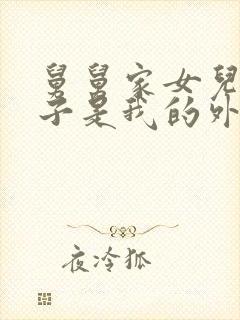 舅舅家女兒
子是我的外
夜冷狐